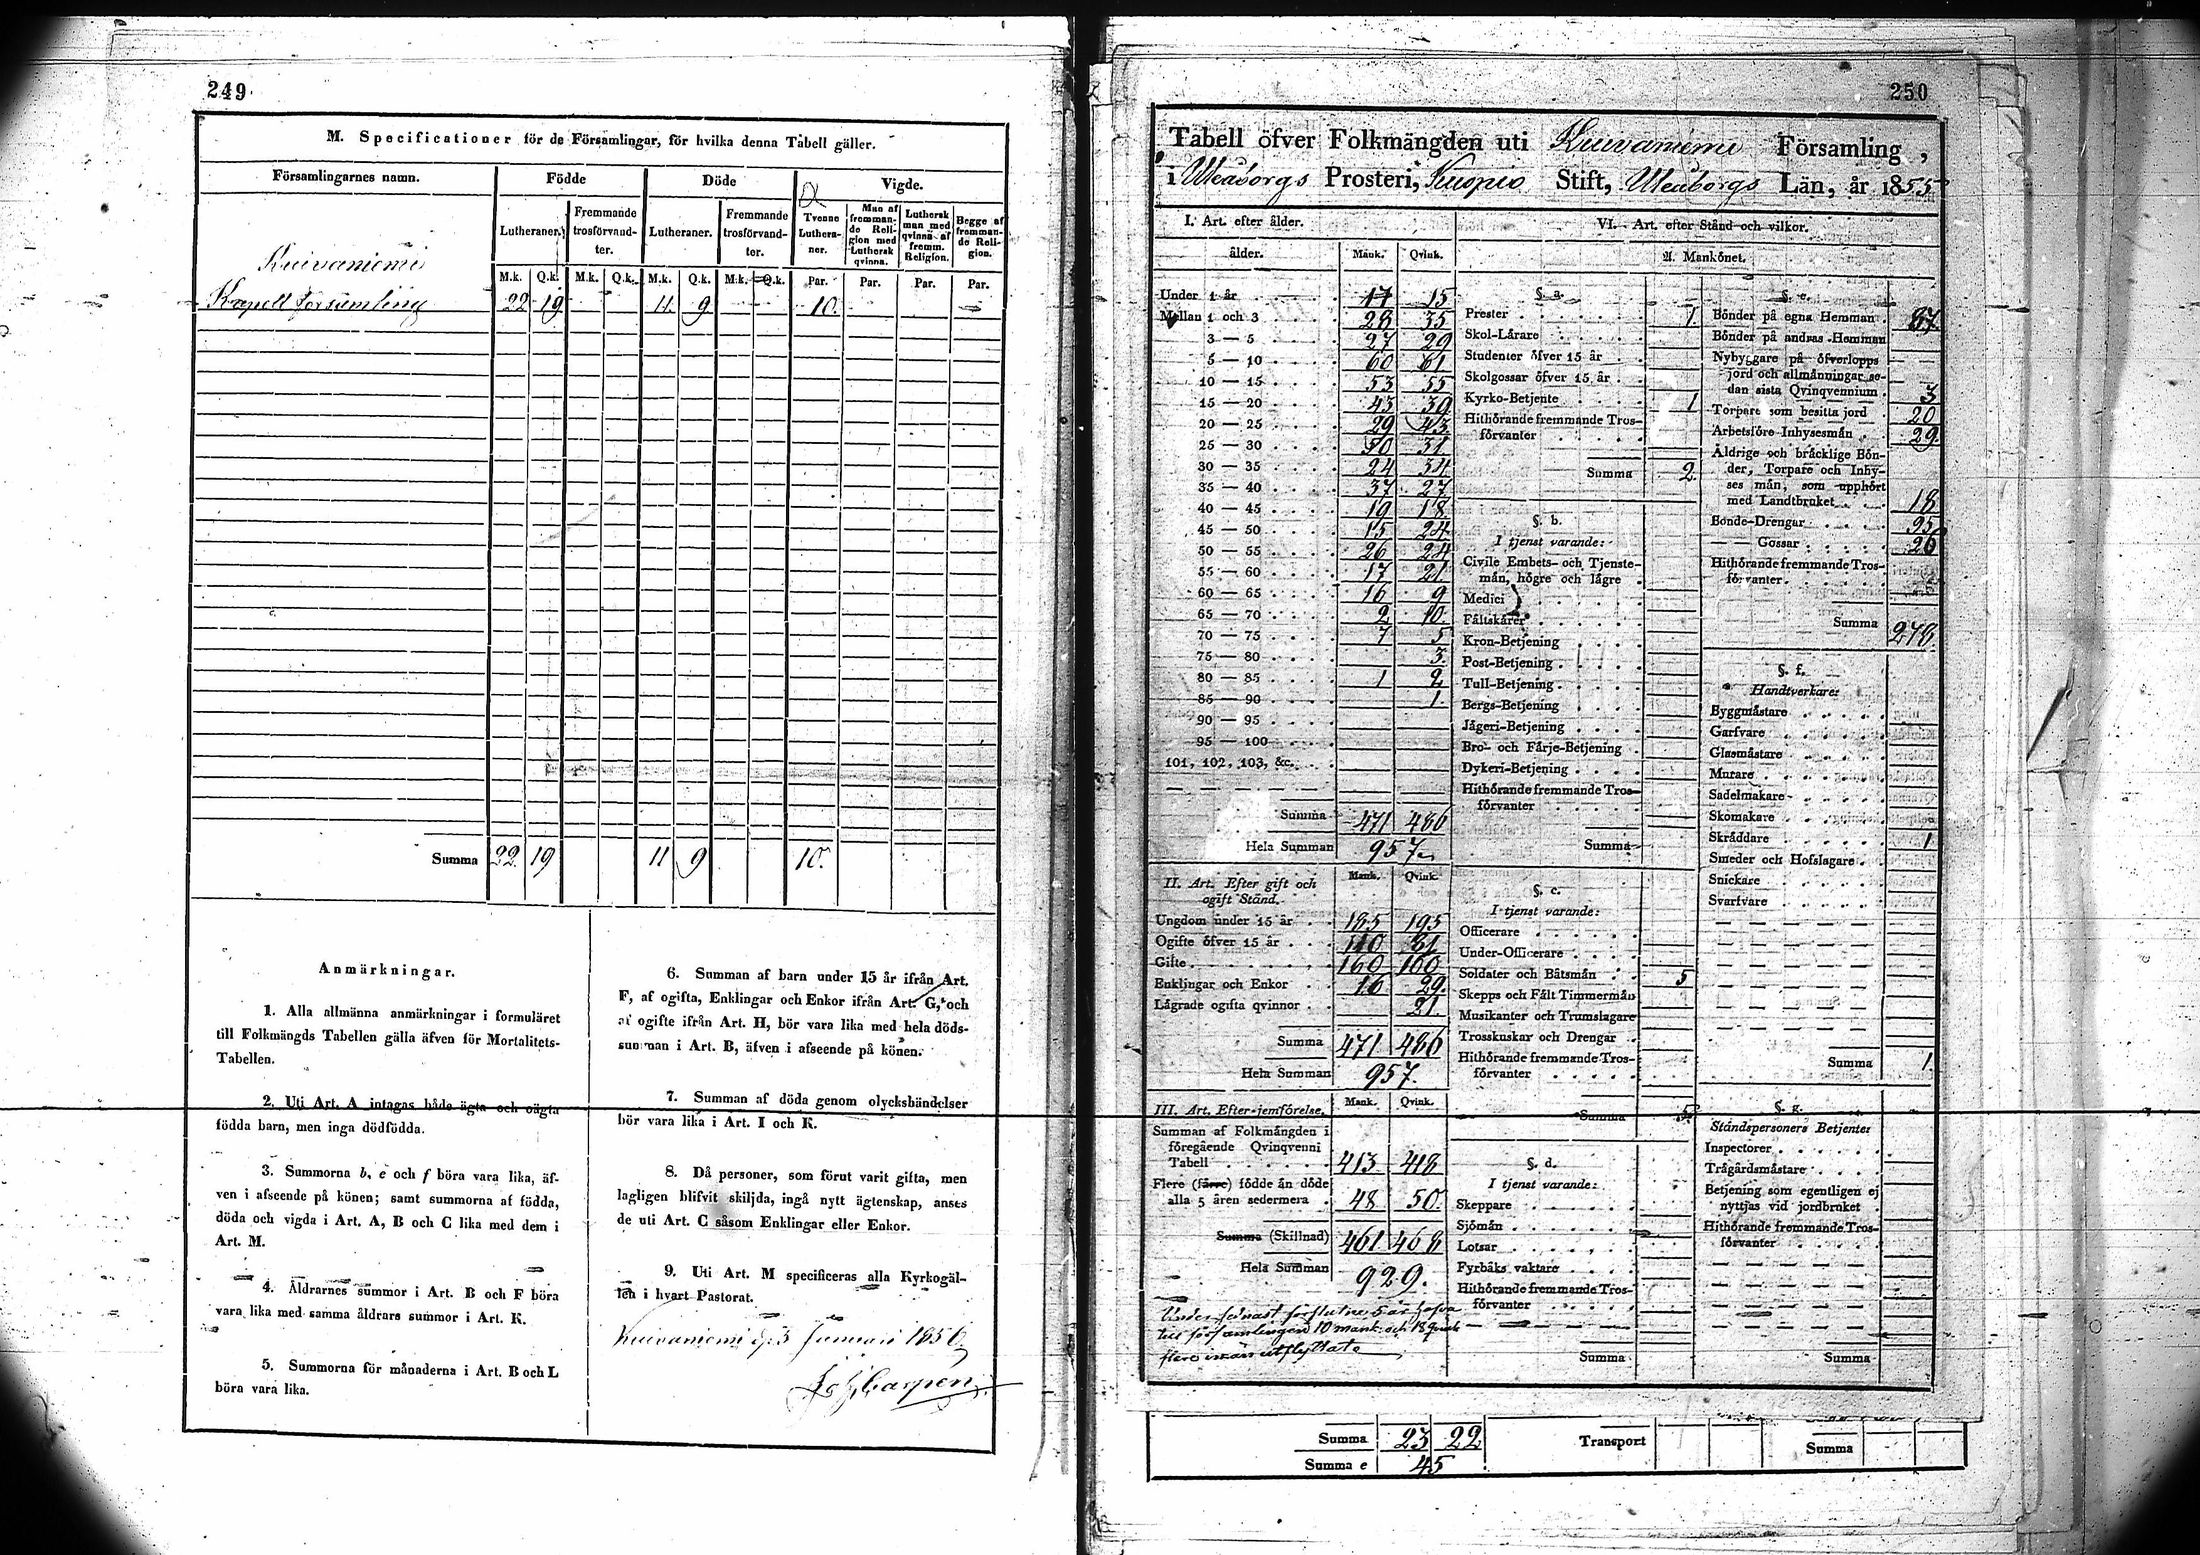 249
M. Specificationer för de Församlingar, för hvilka denna Tabell gäller.
Församlingarnes namn. Födde Döde Vigde.
Lutheraner. Fremmande trosförvandter. Lutheraner. Fremmande trosförvandter. Tvenne Lutheraner. Man af fremmande Religion med Luthersk qvinna. Luthersk man med qvinna af fremm. Religion. Begge af fremmande Religion.
M.k. Q.k. M.k. Q.k. M.k. Q.k. M.k. Q.k. Par. Par. Par. Par.
Kuivaniemi
Kapell församling 22 19 — — 11 9 — — 10. — — —
Summa 22 19 11 9 10.
Anmärkningar.
1. Alla allmänna anmärkningar i formuläret
till Folkmängds Tabellen gälla äfven för Mortalitets-
Tabellen.
2. Uti Art. A intagas både ägta och oägta
födda barn, men inga dödfödda.
3. Summorna b, e och f böra vara lika, äf-
ven i afseende på könen; samt summorna af födda,
döda och vigda i Art. A, B och C lika med dem i
Art. M.
4. Åldrarnes summor i Art. B och F böra
vara lika med samma åldrars summor i Art. K.
5. Summorna för månaderna i Art. B och L
böra vara lika.
6. Summan af barn under 15 år ifrån Art.
F, af ogifta, Enklingar och Enkor ifrån Art. G, och
af ogifte ifrån Art. H, bör vara lika med hela döds-
summan i Art. B, äfven i afseende på könen.
7. Summan af döda genom olyckshändelser
bör vara lika i Art. I och K.
8. Då personer, som förut varit gifta, men
lagligen blifvit skiljda, ingå nytt ägtenskap, anses
de uti Art. C såsom Enklingar eller Enkor.
9. Uti Art. M specificeras alla Kyrkogäl-
len i hvart Pastorat.
Kuivaniemi d. 3 Januari 1856
250
Tabell öfver Folkmängden uti Kuivaniemi Församling,
i Uleåborgs Prosteri, Kuopio Stift, Uleåborgs Län, år 1855
I. Art. efter ålder.
ålder. Mank. Qvink.
Under 1 år 17 15
Mellan 1 och 3 28 35
3 — 5 27 29
5 — 10 60 61
10 — 15 53 55
15 — 20 43 39
20 — 25 29 43
25 — 30 50 31
30 — 35 24 34
35 — 40 37 27
40 — 45 19 18
45 — 50 15 24
50 — 55 26 24
55 — 60 17 21
60 — 65 16 9
65 — 70 2 10
70 — 75 7 5
75 — 80 3
80 — 85 1 2
85 — 90 1
90 — 95
95 — 100
101, 102, 103, &c.
Summa 471 486
Hela Summan 957
II. Art. Efter gift och
ogift Stånd. Mank. Qvink.
Ungdom under 15 år 185 195
Ogifte öfver 15 år 110 81
Gifte 160 160
Enklingar och Enkor 16 29
Lägrade ogifta qvinnor 21
Summa 471 486
Hela Summan 957.
III. Art. Efter jemförelse. Mank. Qvink.
Summan af Folkmängden i
föregående Qvinqvenni
Tabell 413 418
Flere (färre) födde än döde
alla 5 åren sedermera 48 50.
Summa (Skillnad) 461 468
Hela Summan 929.
till församlingen 10 mank. och 18 qvink.
flere in än utflyttat
VI. Art. efter Stånd och vilkor.
A. Mankönet.
§. a.
Prester 1.
Skol-Lärare
Studenter öfver 15 år
Skolgossar öfver 15 år
Kyrko-Betjente 1
Hithörande fremmande Tros-
förvanter
Summa 2.
§. b.
I tjenst varande:
Civile Embets- och Tjenste-
män, högre och lägre
Medici
Fältskärer
Kron-Betjening
Post-Betjening
Tull-Betjening
Bergs-Betjening
Jägeri-Betjening
Bro- och Färje-Betjening
Dykeri-Betjening
Hithörande fremmande Tros-
förvanter
Summa
§. c.
I tjenst varande:
Officerare
Under-Officerare
Soldater och Båtsmän 5
Skepps och Fält Timmermän
Musikanter och Trumslagare
Trosskuskar och Drengar
Hithörande fremmande Tros-
förvanter
Summa 5.
§. d.
I tjenst varande:
Skeppare
Sjömän
Lotsar
Fyrbåks vaktare
Hithörande fremmande Tros-
förvanter
Summa
§. e.
Bönder på egna Hemman 87.
Bönder på andras Hemman
Nybyggare på öfverlopps
jord och allmänningar se-
dan sista Qvinqvennium 3
Torpare som besitta jord 20
Arbetsföre Inhysesmän 29.
Åldrige och bräcklige Bön-
der, Torpare och Inhy-
ses män, som upphört
med Landtbruket 18
Bonde-Drengar 95
— — Gossar 26
Hithörande fremmande Tros-
förvanter
Summa 278.
§. f.
Handtverkare:
Byggmästare
Garfvare
Glasmästare
Murare
Sadelmakare
Skomakare
Skräddare 1
Smeder och Hofslagare
Snickare
Svarfvare
Summa 1.
§. g.
Ståndspersoners Betjente:
Inspectorer
Trägårdsmästare
Betjening som egentligen ej
nyttjas vid jordbruket
Hithörande fremmande Tros-
förvanter
Summa
Summa 23 22 Transport Summa
Summa e 45